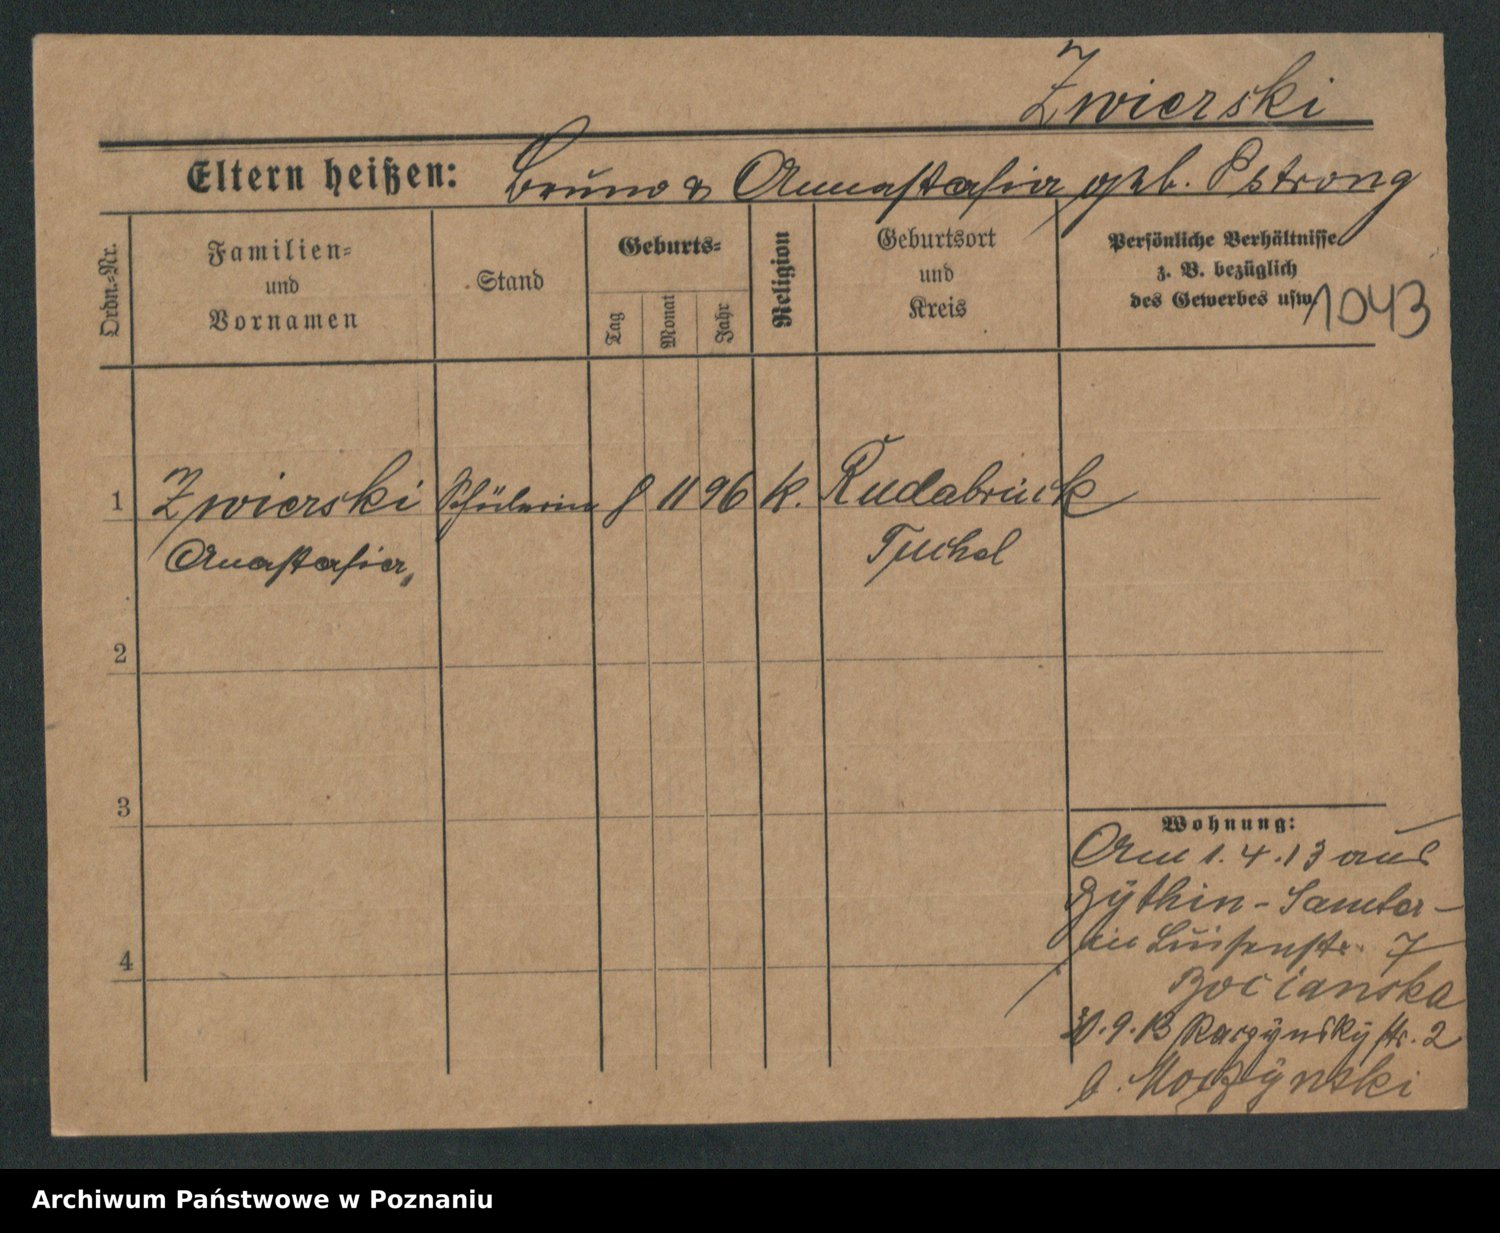 Zwierski
Eltern heißen: Bruno & Annastasia geb. Pstrong
Ordn.-Nr.
Familien-
und
Vornamen
Stand
Geburts-
Tag
Monat
Jahr
Religion
Geburtsort
und
Kreis
Persönliche Verhältnisse
z. B. bezüglich
des Gewerbes usw.
1043
1 Zwierski Schülerin 8 11 96 k. Rudabrück
Anastasia Tuchel
2
3
4
Wohnung:
Am 1.4.13 aus
Bythin - Samter -
in Luisenstr. 7
Bocianska
30.9.13 Raczynskystr. 2
b. Moczynski
Archiwum Państwowe w Poznaniu